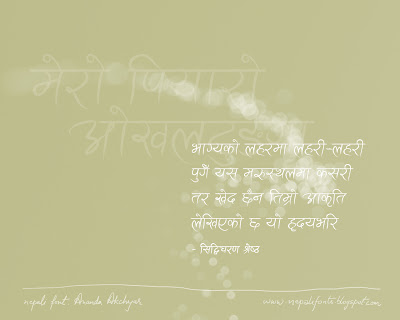 मेरो प्यारो
ओखलढुङ्गा
भाग्यको लहरमा लहरी-लहरी
पुगेँ यस मरुस्थलमा कसरी
तर खेद छैन तिम्रो आकृति
लेखिएको छ यो हृदयभरि
- सिद्धिचरण श्रेष्ठ
nepali font: Ananda Adichayar
www.nepalifonts.blogspot.com